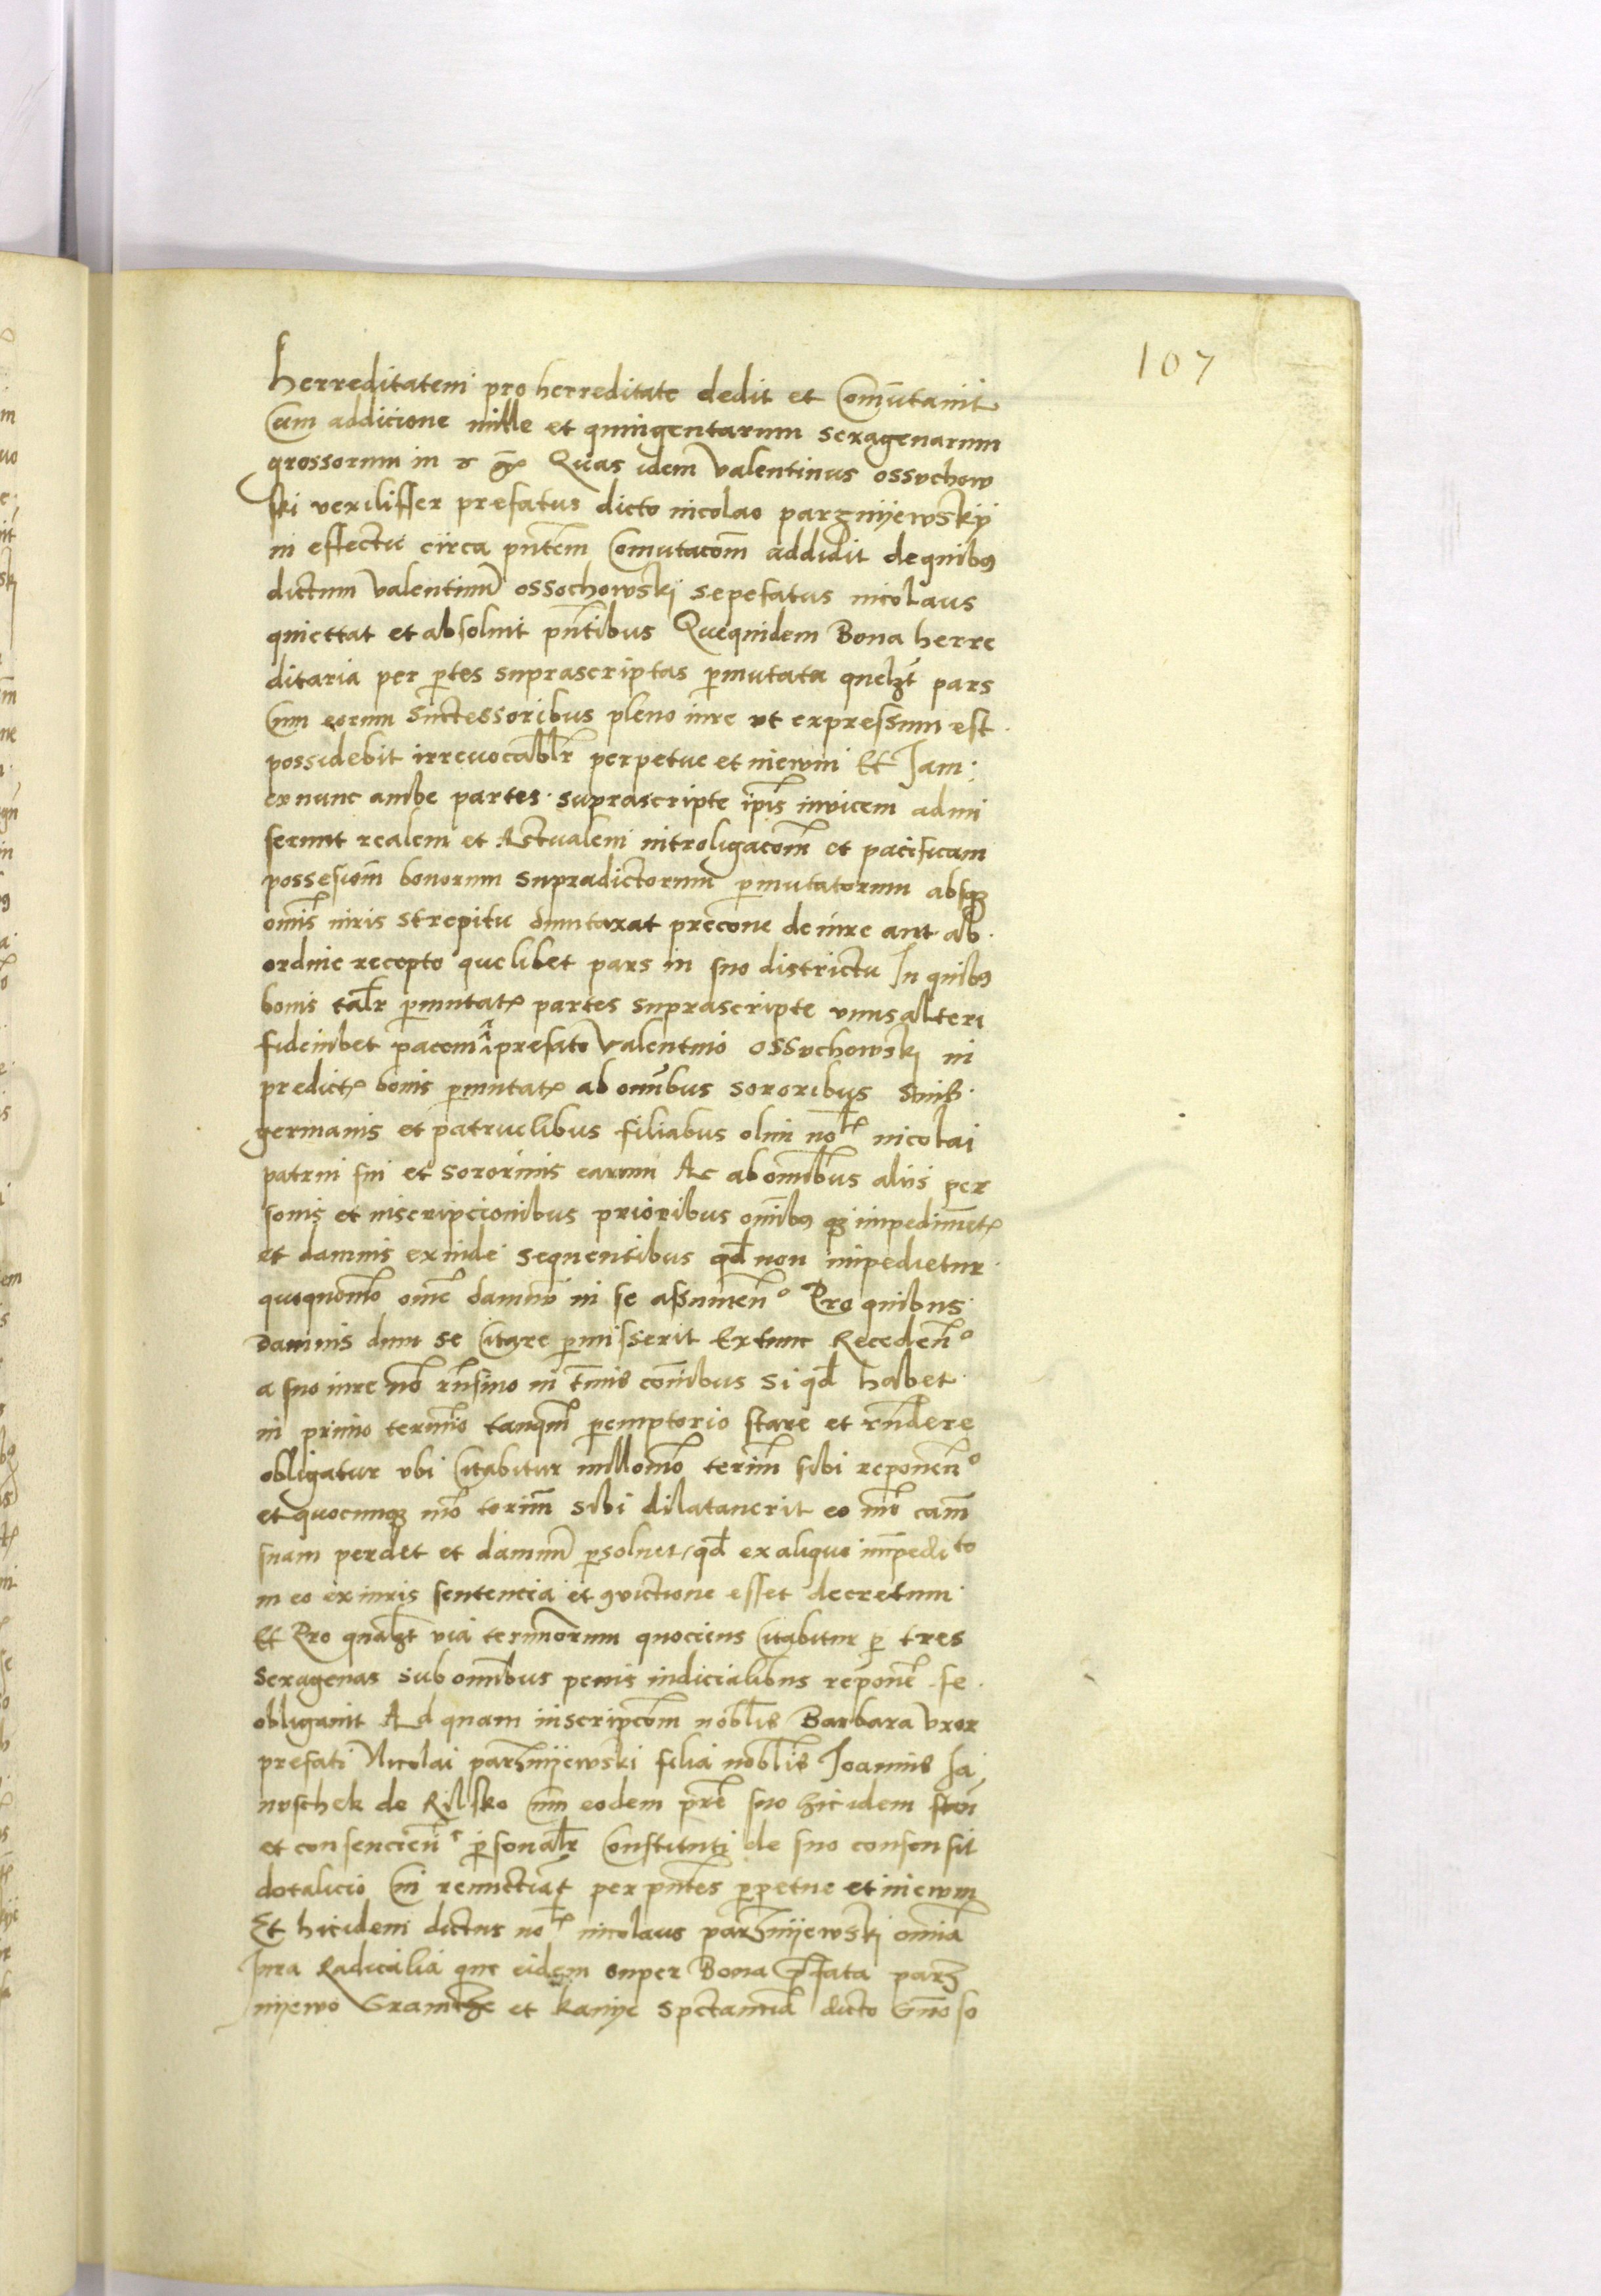 107
herreditatem pro herreditate dedit et Com̄utauit
Cum addicione mille et quingentarum sexagenarum
grossorum in
Quas idem Valentinus ossvchow
ski vexiliffer prefatus dicto nicolao parznijewskij
in effectu circa pn̄tem Comutacōm addidit de quibus
dictum Valentinū ossochowskj sepefatus nicolaus
quiettat et absoluit pn̄tibus Quequidem Bona herre
ditaria per ptes suprascriptas pmutata quelzt pars
Cum eorum suctessoribus pleno iure vt expressum est
possidebit irreuocablr perpetue et inewm Et Jam
ex nunc ambe partes suprascripte ipīs invicem admi
serunt realem et Actualem introligacōm et pacificam
possesiom bonorum supradictorum pmutatorum absqz
omīs iuris strepitu dumtaxat precone de iure aut ab
ordine recepto quelibet pars in suo districtu In quibus
bonis talr pmutat partes suprascripte vnus alteri
fideiubet pacem prefato Valentino ossvchowskj in
predict bonis pmutat ab omībus sororibus suis
germanis et patruelibus filiabus olim nol nicolai
patrui sui et sororinis earum Ac ab omībus aliis per
sonis et inscripcionibus prioribus omībus qz impedimēt
et damnis exinde sequentibus qd non impedietur
quoquomō omē damnū in se assumen° Pro quibus
Damnis dum se Citare pmisserit Extunc Receden°
a suo iure nō in tmīs cōmibus si qd habet
in primo termīo tanqm pemptorio stare et rn̄dere
obligatur vbi Citabitur nullomō termī sibi reponen°
et quocumqz mō termī sibi dilatauerit eo mō cam̄
suam perdet et damnū psoluet qd ex aliquo imped to
in eo ex iuris sentencia et 9victione esset decretum
Et Pro qualzt via terminorum quociens Citabitur p tres
sexagenas sub omībus penis iudicialibus reponē se
obligauit Ad quam inscripcōm noblis Barbara vxor
prefati Nicolai parznijewski filia noblis Joannis Ja
nvschek de Rilsko Cum eodem pre suo hic idem stan
et consencien psonalr Constituti de suo consensit
dotalicio Cui renuctiat per pn̄tes ppetue et inewm
Et hicidem dictus nol nicolaus parznijewskj omīa
Jura Radicalia que eidem super Bona pfata parz
nijewo Gramtze et kanije spctancia dicto Gn̄oso